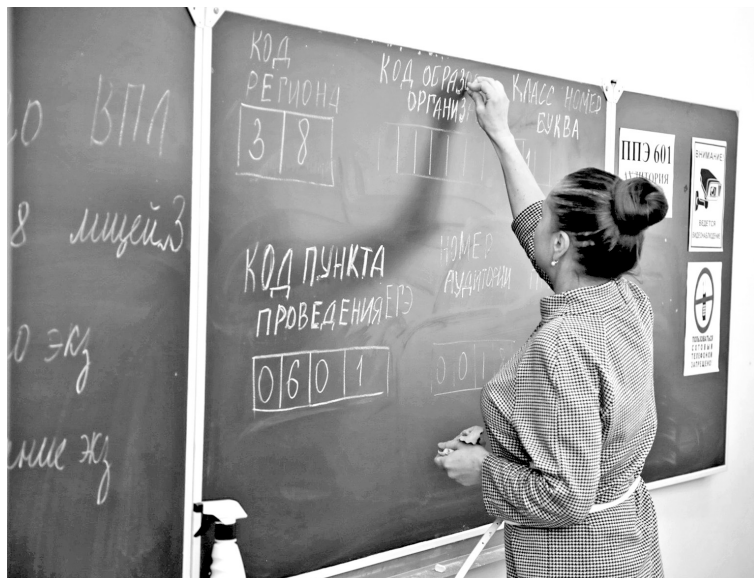 ВПЛ
8 лицей
экз
экз
КОД
РЕГИОНА
3 8
КОД
КЛАСС НОМЕР
БУКВА
КОД ПУНКТА
ПРОВЕДЕНИЯ ЕГЭ
0601
НОМЕР
АУДИТОРИИ
ППЭ 601
АУДИТОРИЯ
ВНИМАНИЕ
ВЕДЕТСЯ
ВИДЕОНАБЛЮДЕНИЕ
ПОЛЬЗОВАТЬСЯ
СОТОВЫМ
ТЕЛЕФОНОМ
ЗАПРЕЩЕНО